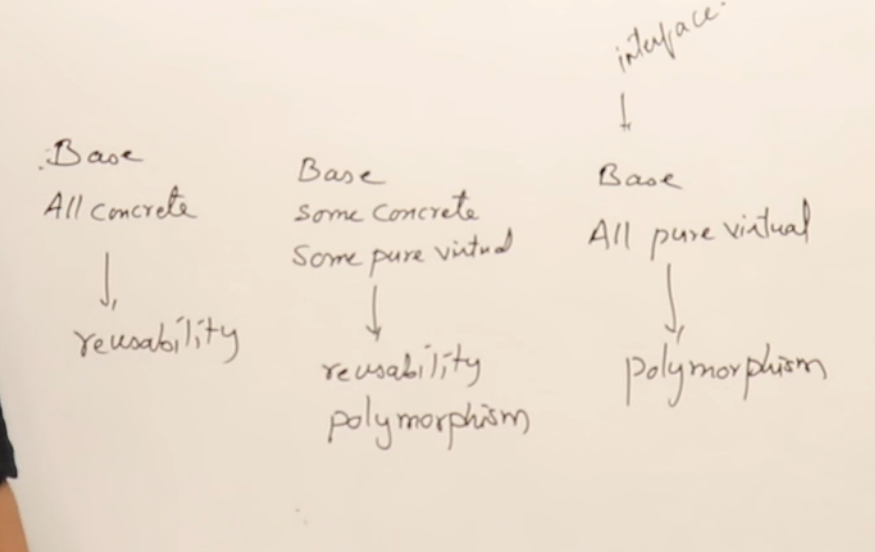 Base
All concrete
reusability
Base
some concrete
some pure virtual
reusability
polymorphism
interface.
Base
All pure virtual
polymorphism